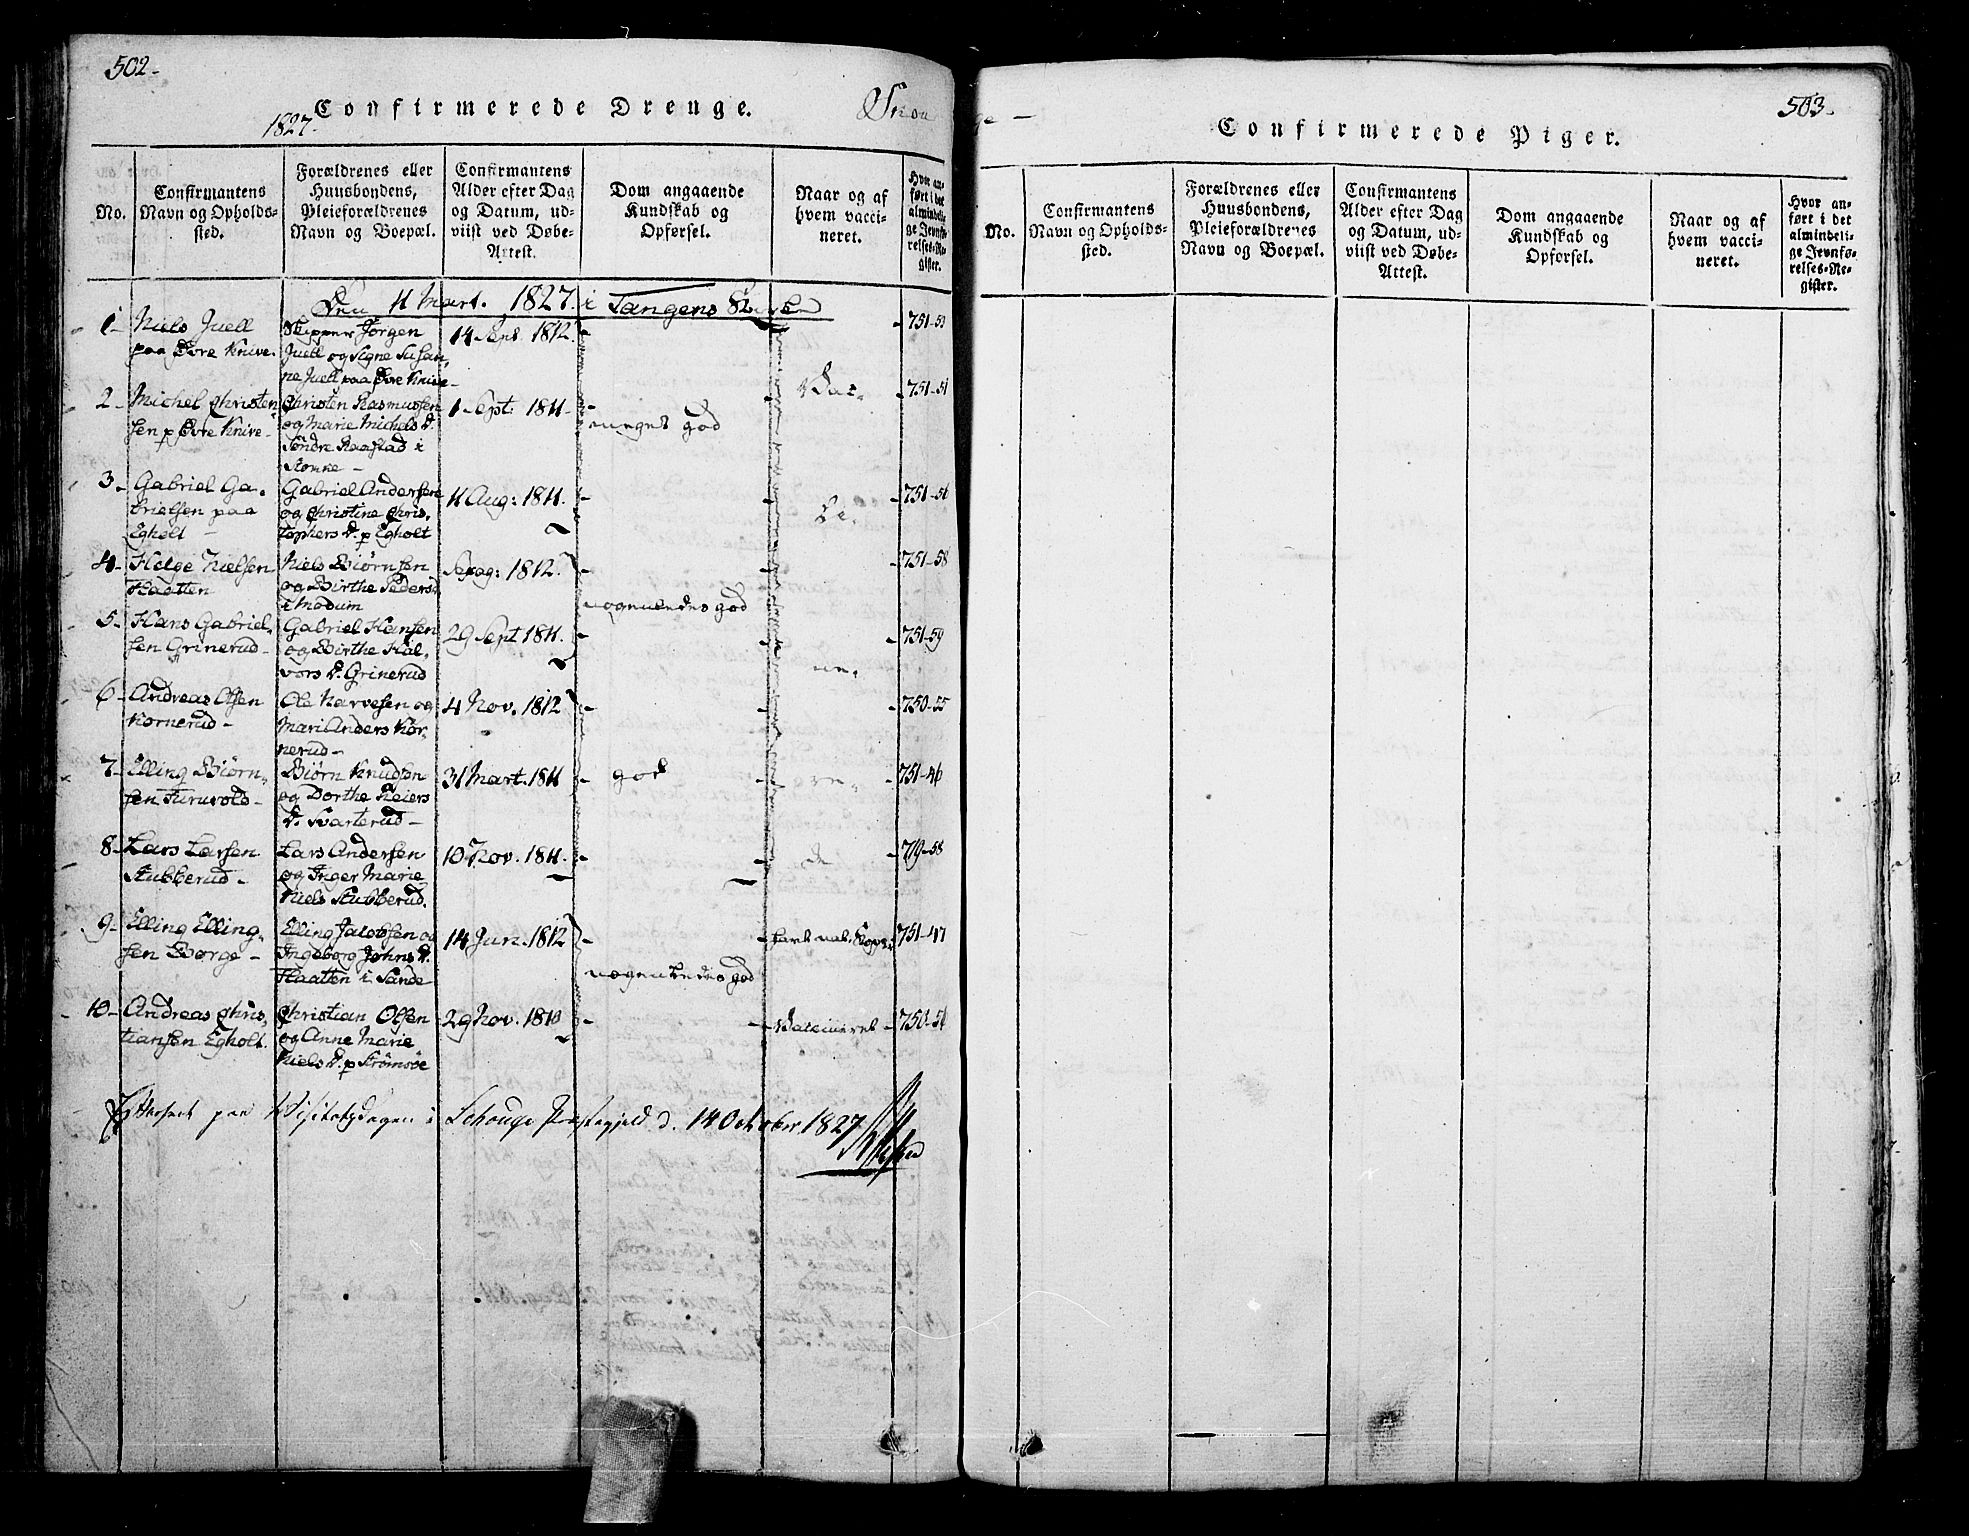 502-
Confirmerede Drenge.
1827-
No.
Confirmantens Navn og Opholds-
sted.
Forældrenes eller
Huusbondens,
Pleieforældrenes
Navn og Boepæl.
Confirmantens
Alder efter Dag
og Datum, ud-
viist ved Døbe-
Attest.
Dom angaaende
Kundskab og
Opførsel.
Naar og af
hvem vacci-
neret.
Hvor an-
ført i det
almindeli-
ge Jevnfø-
relses-Re-
gister.
11 Mart. 1827. i Tangens Kirke
1- Niels Juell
paa Øvre Knive.
Skipper Jörgen
Juell og Signe Susan,
ne Juell paa Øvre Knive-
14 Sept. 1812.
751-53
2- Michel Christen
sen p Øvre Knive-
Christen Rasmussen
og Marie Michels D.
Söndre Raastad i
1 Sept: 1811-
meget god
Vac-
751-51
3- Gabriel Ga-
brielsen paa
Egholt -
Gabriel Andersen
og Christine Chris,
tophers D. p Egholt
11 Aug: 1811.
751-56
4- Helge Nielsen
Haatten
Niels Biörnsen
og Birthe Peders
i Modum
1812.
nogenledes god
751-58
5- Hans Gabriel,
sen Grinerud-
Gabriel Hansen
og Birthe Hal,
vors D. Grinerud
29 Sept 1811.
751-59
6- Andreas Olsen
Kornerud-
Ole Narvesen og
Mari Anders Kor,
nerud-
4 Nov. 1812
750-55
7- Elling Biörn,
sen Furuvold-
Biörn Knudsen
og Dorthe Reiers
D. Svarterud-
31 Mart. 1811
god
751-46
8- Lars Larsen
Stubberud-
Lars Andersen
og Inger Marie
Niels Stubberud.
10 Nov. 1811.
719-58
9- Elling Elling,
sen Borge-
Elling Jacobsen og
Ingeborg Johns D.
Haatten i Sande
14 Jun. 1812
nogenledes god
751-47
10- Andreas Chris,
tiansen Egholt.
Christian Olsen
og Anne Marie
Niels D. p Strömsöe
29 Nov. 1810
Vaccineret-
750-51
Efterseet paa Visitatsdagen i Schouge Præstegjeld d. 14 October 1827
503-
Confirmerede Piger.
No.
Confirmantens
Navn og Opholds-
sted.
Forældrenes eller
Huusbondens,
Pleieforældrenes
Navn og Boepæl.
Confirmantens
Alder efter Dag
og Datum, ud-
viist ved Døbe-
Attest.
Dom angaaende
Kundskab og
Opførsel.
Naar og af
hvem vacci-
neret.
Hvor an-
ført i det
almindeli-
ge Jevnfø-
relses-Re-
gister.